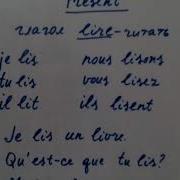 Présent
глагол lire - читать
je lis nous lisons
tu lis vous lisez
il lit ils lisent
Je lis un livre.
Qu'est-ce que tu lis?